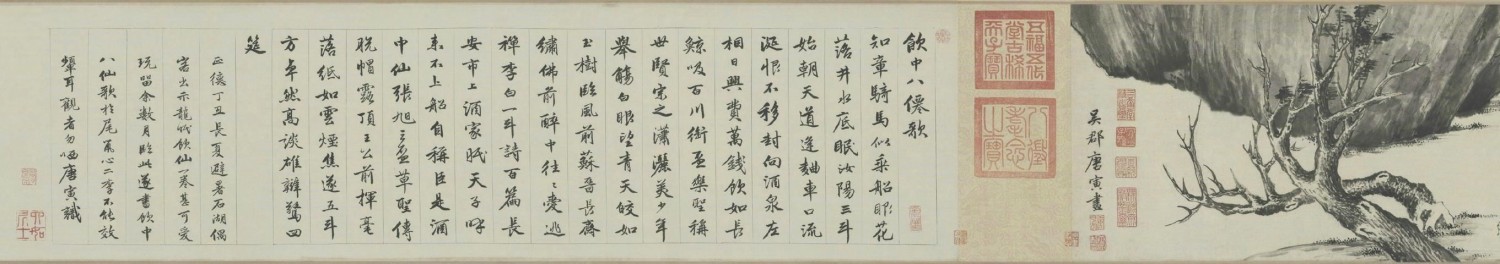 吳郡唐寅畫
五福五代
堂古稀
天子寶
八徵
耄念
之寶
飲中八僊歌
知章騎馬似乘船眼花
落井水底眠汝陽三斗
始朝天道逢麯車口流
涎恨不移封向酒泉左
相日興費萬錢飲如長
鯨吸百川銜盃樂聖稱
世賢宗之瀟灑美少年
舉觴白眼望青天皎如
玉樹臨風前蘇晉長齋
繡佛前醉中往〻愛逃
禪李白一斗詩百篇長
安市上酒家眠天子呼
來不上船自稱臣是酒
中仙張旭三盃草聖傳
脫帽露頂王公前揮毫
落紙如雲煙焦遂五斗
方卓然高談雄辯驚四
筵
正德丁丑長夏避暑石湖偶
出示龍眠飲仙一卷甚可愛
玩留余數月臨此遂書飲中
八仙歌於尾心二李不能效
顰耳觀者勿哂唐寅識
六如
居士